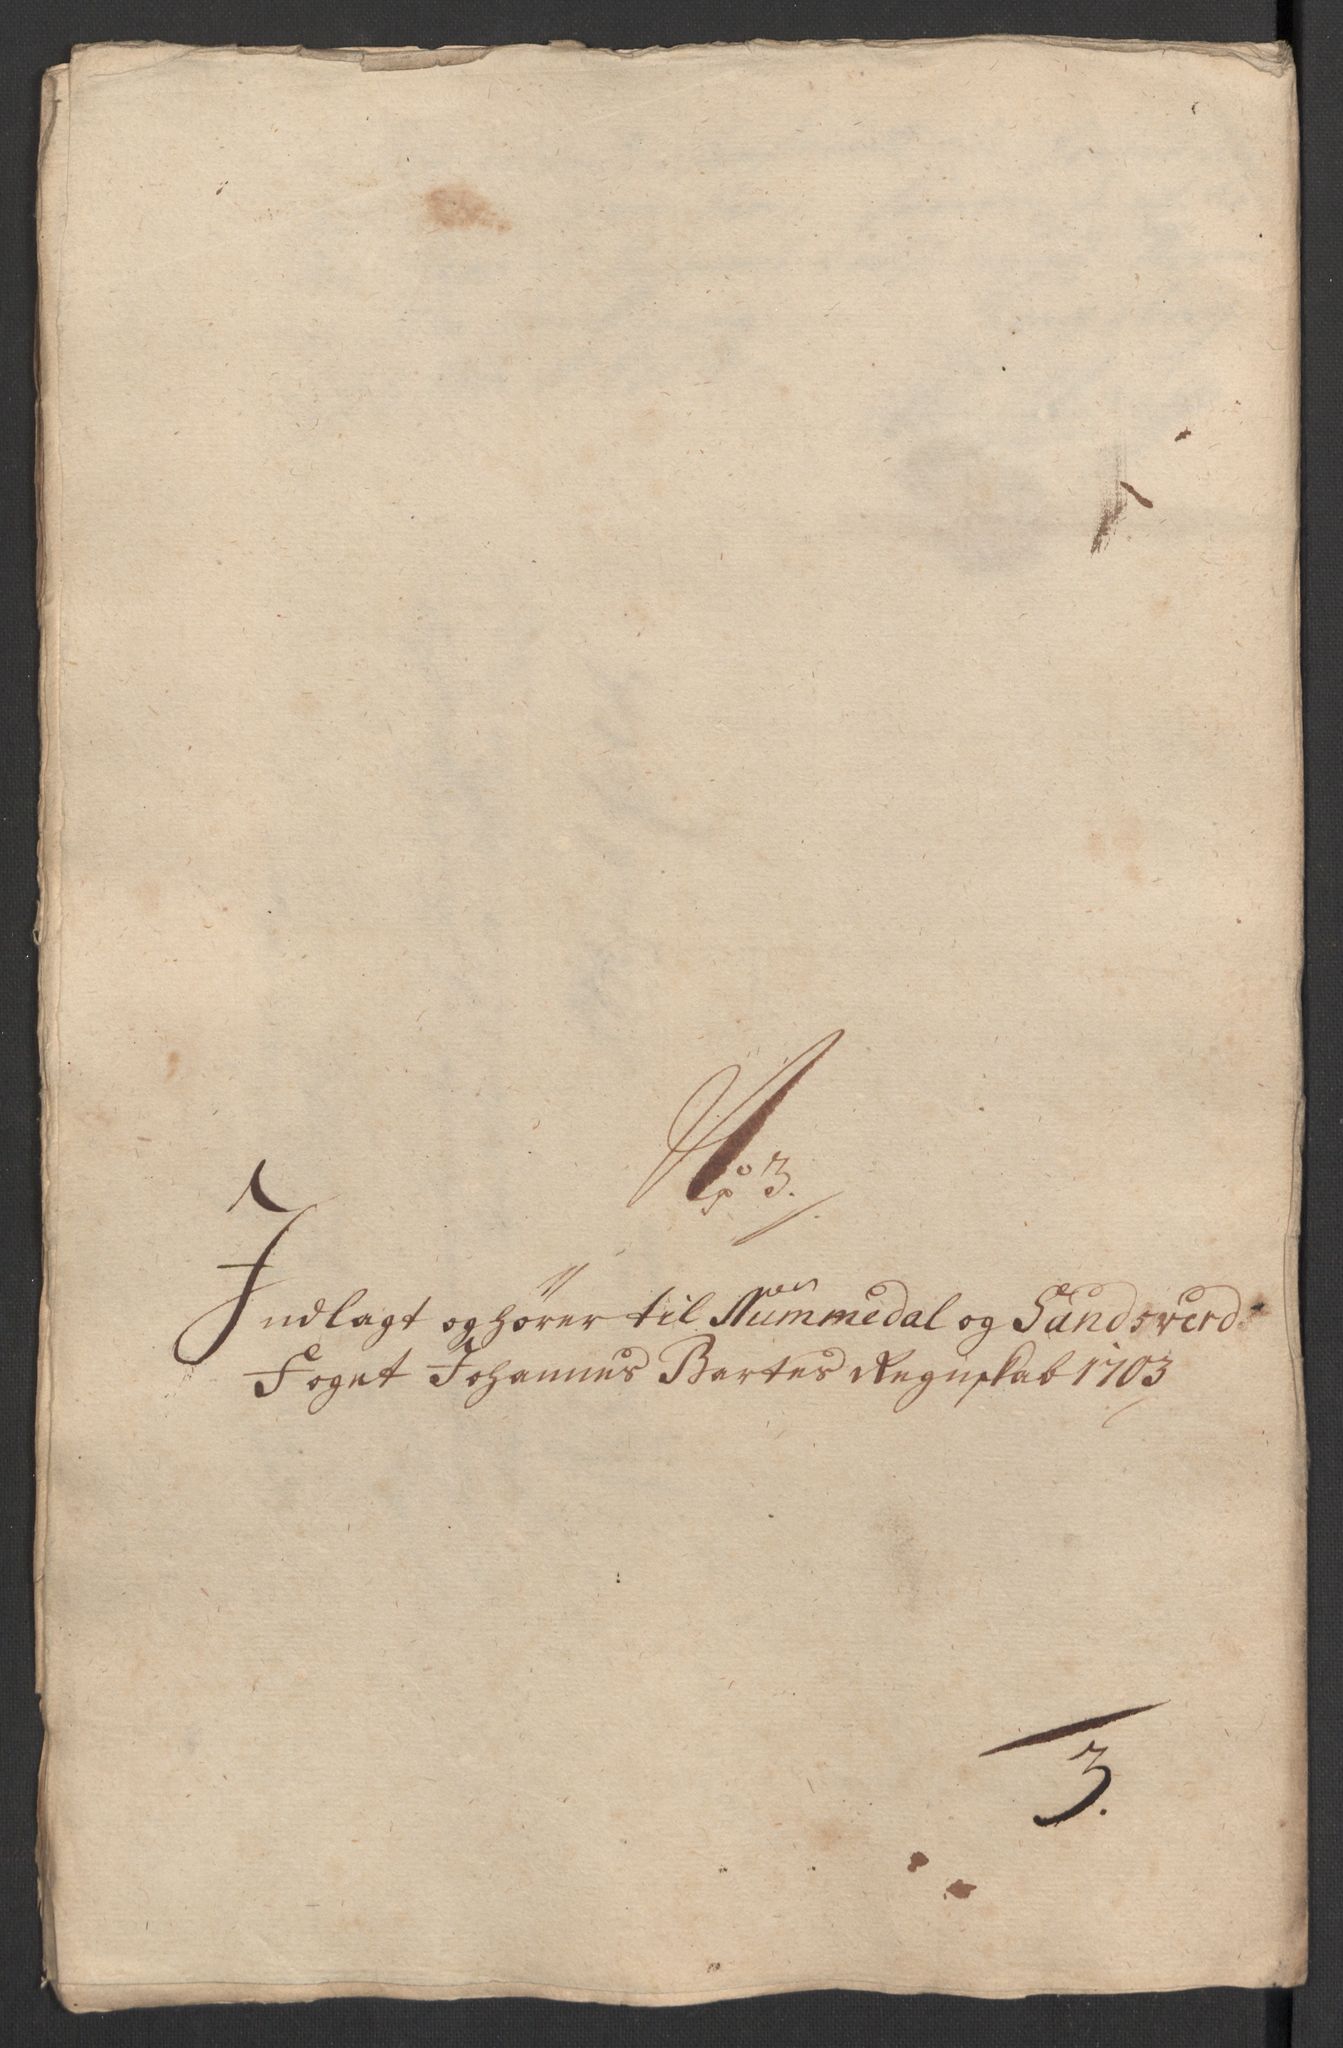 No 3.
Indlagt og hører til Nummedal og Sandsverds
Foget Johannes Bartes Regnskab 1703
3.